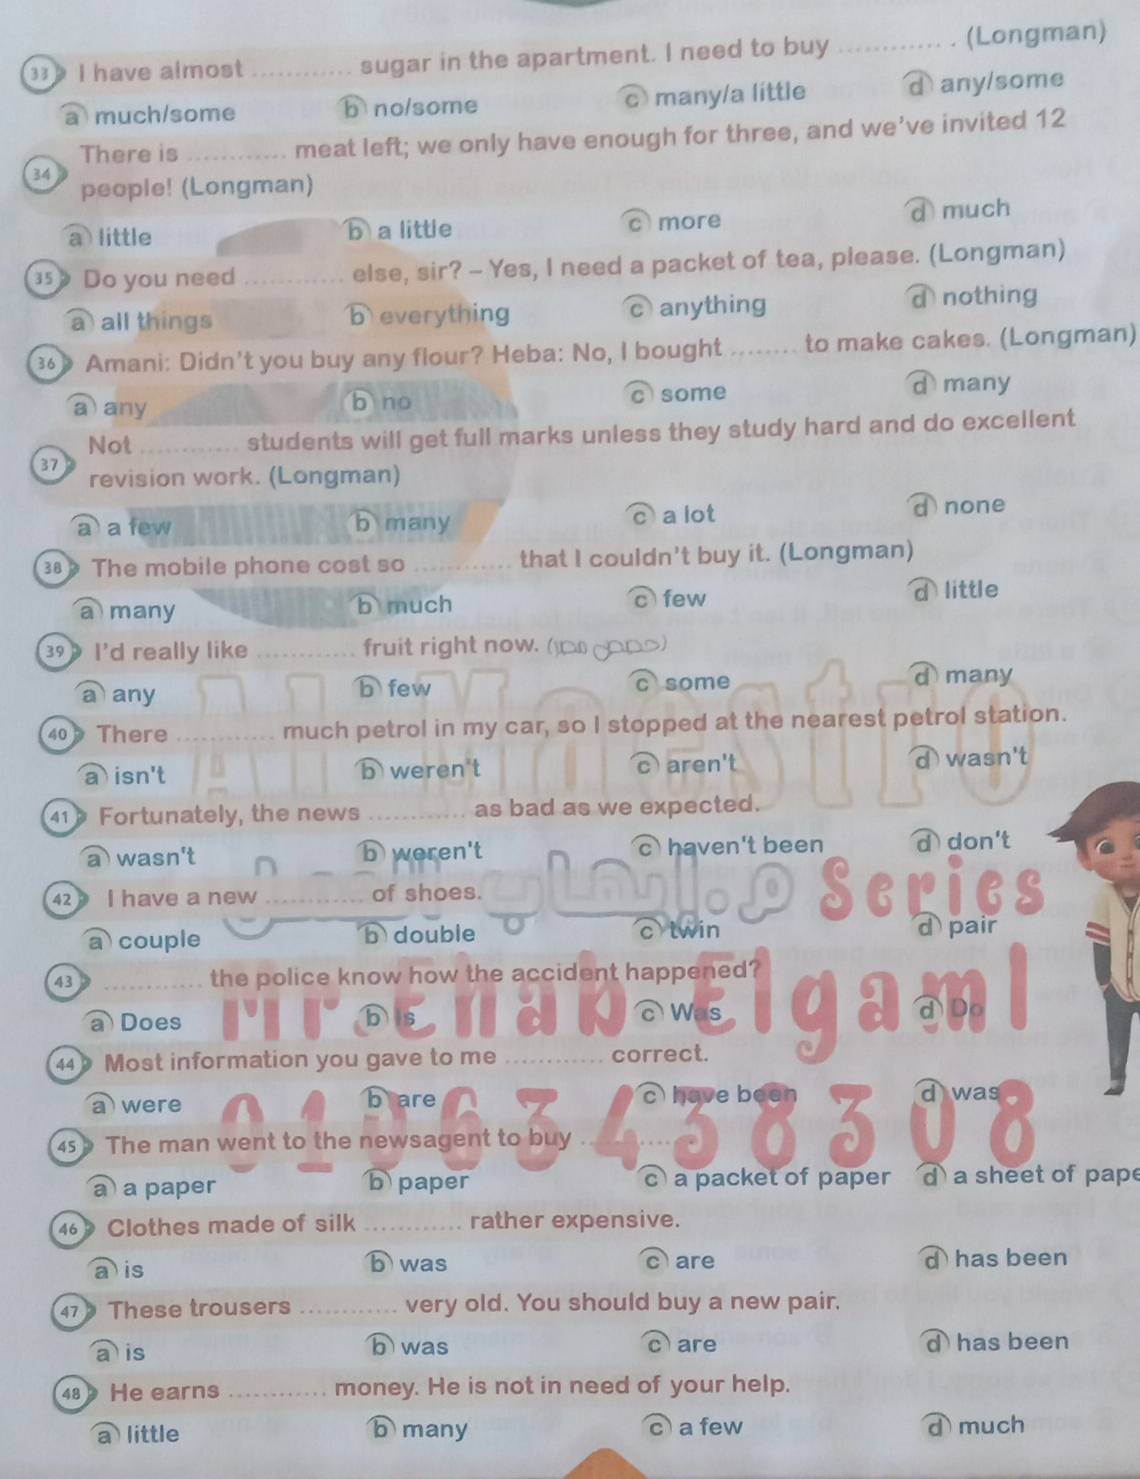 33 I have almost ............ sugar in the apartment. I need to buy ............. . (Longman)
a much/some b no/some c many/a little d any/some
34 There is ............ meat left; we only have enough for three, and we've invited 12
people! (Longman)
a little b a little c more d much
35 Do you need ............ else, sir? – Yes, I need a packet of tea, please. (Longman)
a all things b everything c anything d nothing
36 Amani: Didn't you buy any flour? Heba: No, I bought ........ to make cakes. (Longman)
a any b no c some d many
37 Not ............ students will get full marks unless they study hard and do excellent
revision work. (Longman)
a a few b many c a lot d none
38 The mobile phone cost so ............ that I couldn't buy it. (Longman)
a many b much c few d little
39 I'd really like ............ fruit right now.
a any b few c some d many
40 There ............ much petrol in my car, so I stopped at the nearest petrol station.
a isn't b weren't c aren't d wasn't
Al Maestro
41 Fortunately, the news ............ as bad as we expected.
a wasn't b weren't c haven't been d don't
42 I have a new ............ of shoes.
م. إيهاب الجمل Series
a couple b double c twin d pair
43 ............ the police know how the accident happened?
a Does b Is c Was d Do
Mr. Ehab Elgaml
44 Most information you gave to me ............ correct.
a were b are c have been d was
01063438308
45 The man went to the newsagent to buy ............
a a paper b paper c a packet of paper d a sheet of pape
46 Clothes made of silk ............ rather expensive.
a is b was c are d has been
47 These trousers ............ very old. You should buy a new pair.
a is b was c are d has been
48 He earns ............ money. He is not in need of your help.
a little b many c a few d much